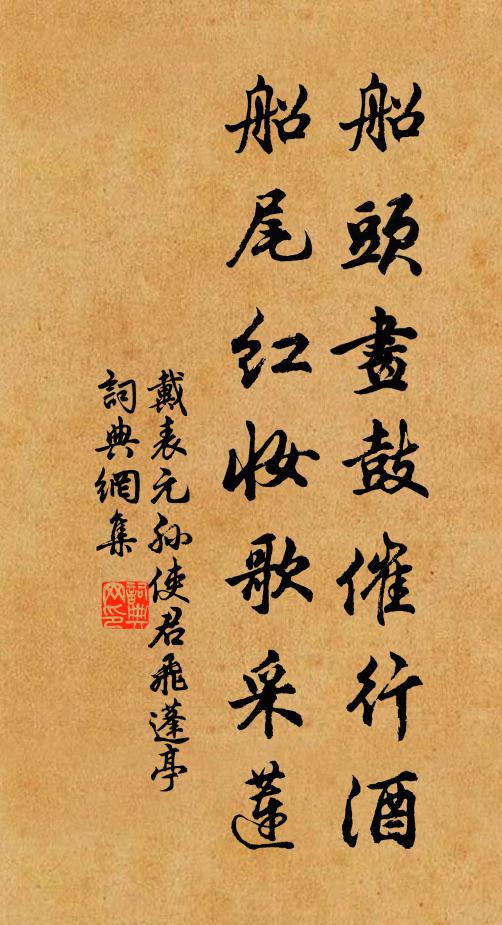 船頭畫鼓催行酒
船尾紅妝歌采蓮
戴表元孫使君飛蓬亭
詞典網集
詞典
网印